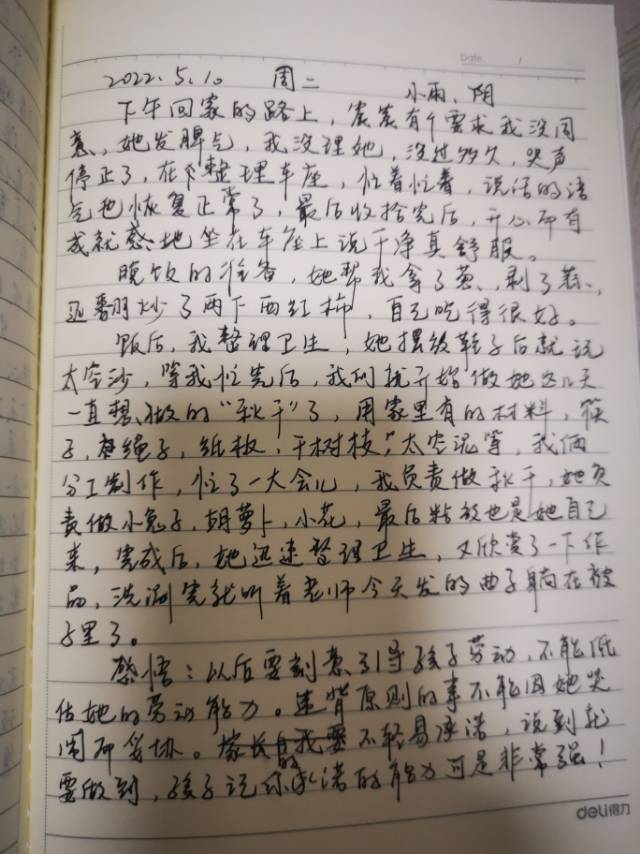 Date. /
2022.5.10 周二 小雨、阴
下午回家的路上，宸宸有个要求我没同
意，她发脾气，我没理她，没过多久，哭声
停止了，在整理车座，忙着忙着，说话的语
气也恢复正常了，最后收拾完后，开心而有
成就感地坐在车座上说干净真舒服。
晚饭的准备，她帮我拿了葱、剥了蒜、
还翻炒了两下西红柿，自己吃得很好。
饭后，我整理卫生，她摆放鞋子后就玩
太空沙，等我忙完后，我们就开始做她这几天
一直想做的“秋千”了，用家里有的材料，筷
子，绳子，纸板，干树枝，太空泥等，我俩
分工制作，忙了一大会儿，我负责做秋千，她负
责做小兔子，胡萝卜，小花，最后粘放也是她自己
来，完成后，她迅速整理卫生，又欣赏了一下作
品，洗漱完就听着老师今天发的曲子躺在被
子里了。
感悟：以后要刻意引导孩子劳动，不能低
估她的劳动能力。违背原则的事不能因她哭
闹而妥协。不轻易承诺，说到就
要做到，孩子记你承诺的能力可是非常强！
deli得力